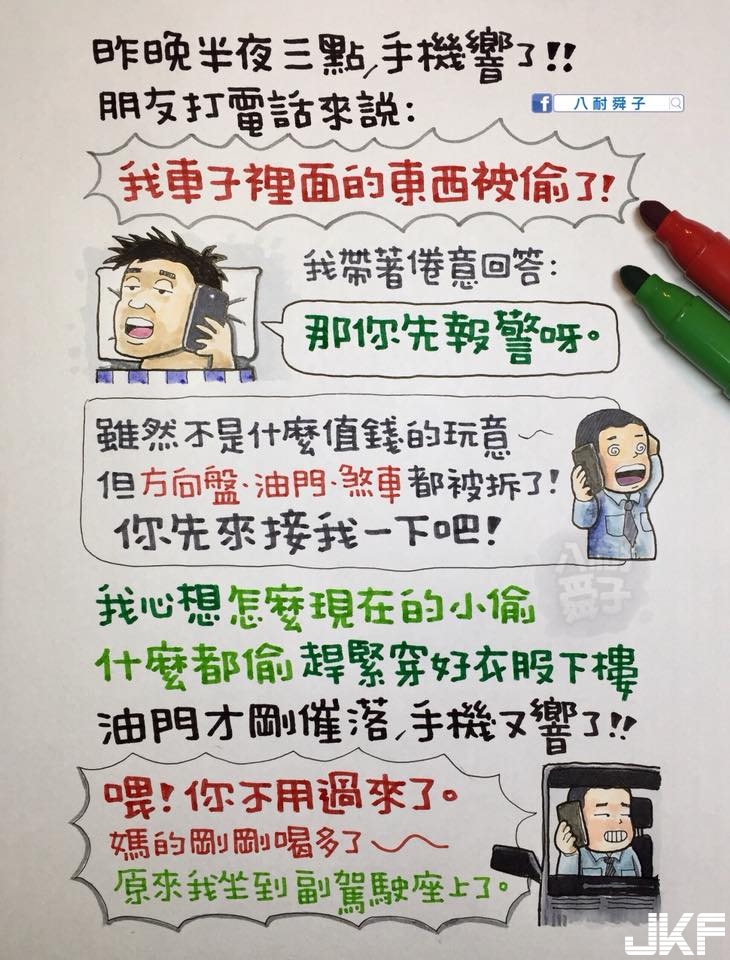 昨晚半夜三點,手機響了!!
朋友打電話來說:
八耐舜子
我車子裡面的東西被偷了!
我帶著倦意回答:
那你先報警呀。
雖然不是什麼值錢的玩意~
但方向盤、油門、煞車都被拆了!
你先來接我一下吧!
八耐舜子
我心想怎麼現在的小偷
什麼都偷趕緊穿好衣服下樓
油門才剛催落,手機又響了!!
喂!你不用過來了。
媽的剛剛喝多了~~
原來我坐到副駕駛座上了。
JKF